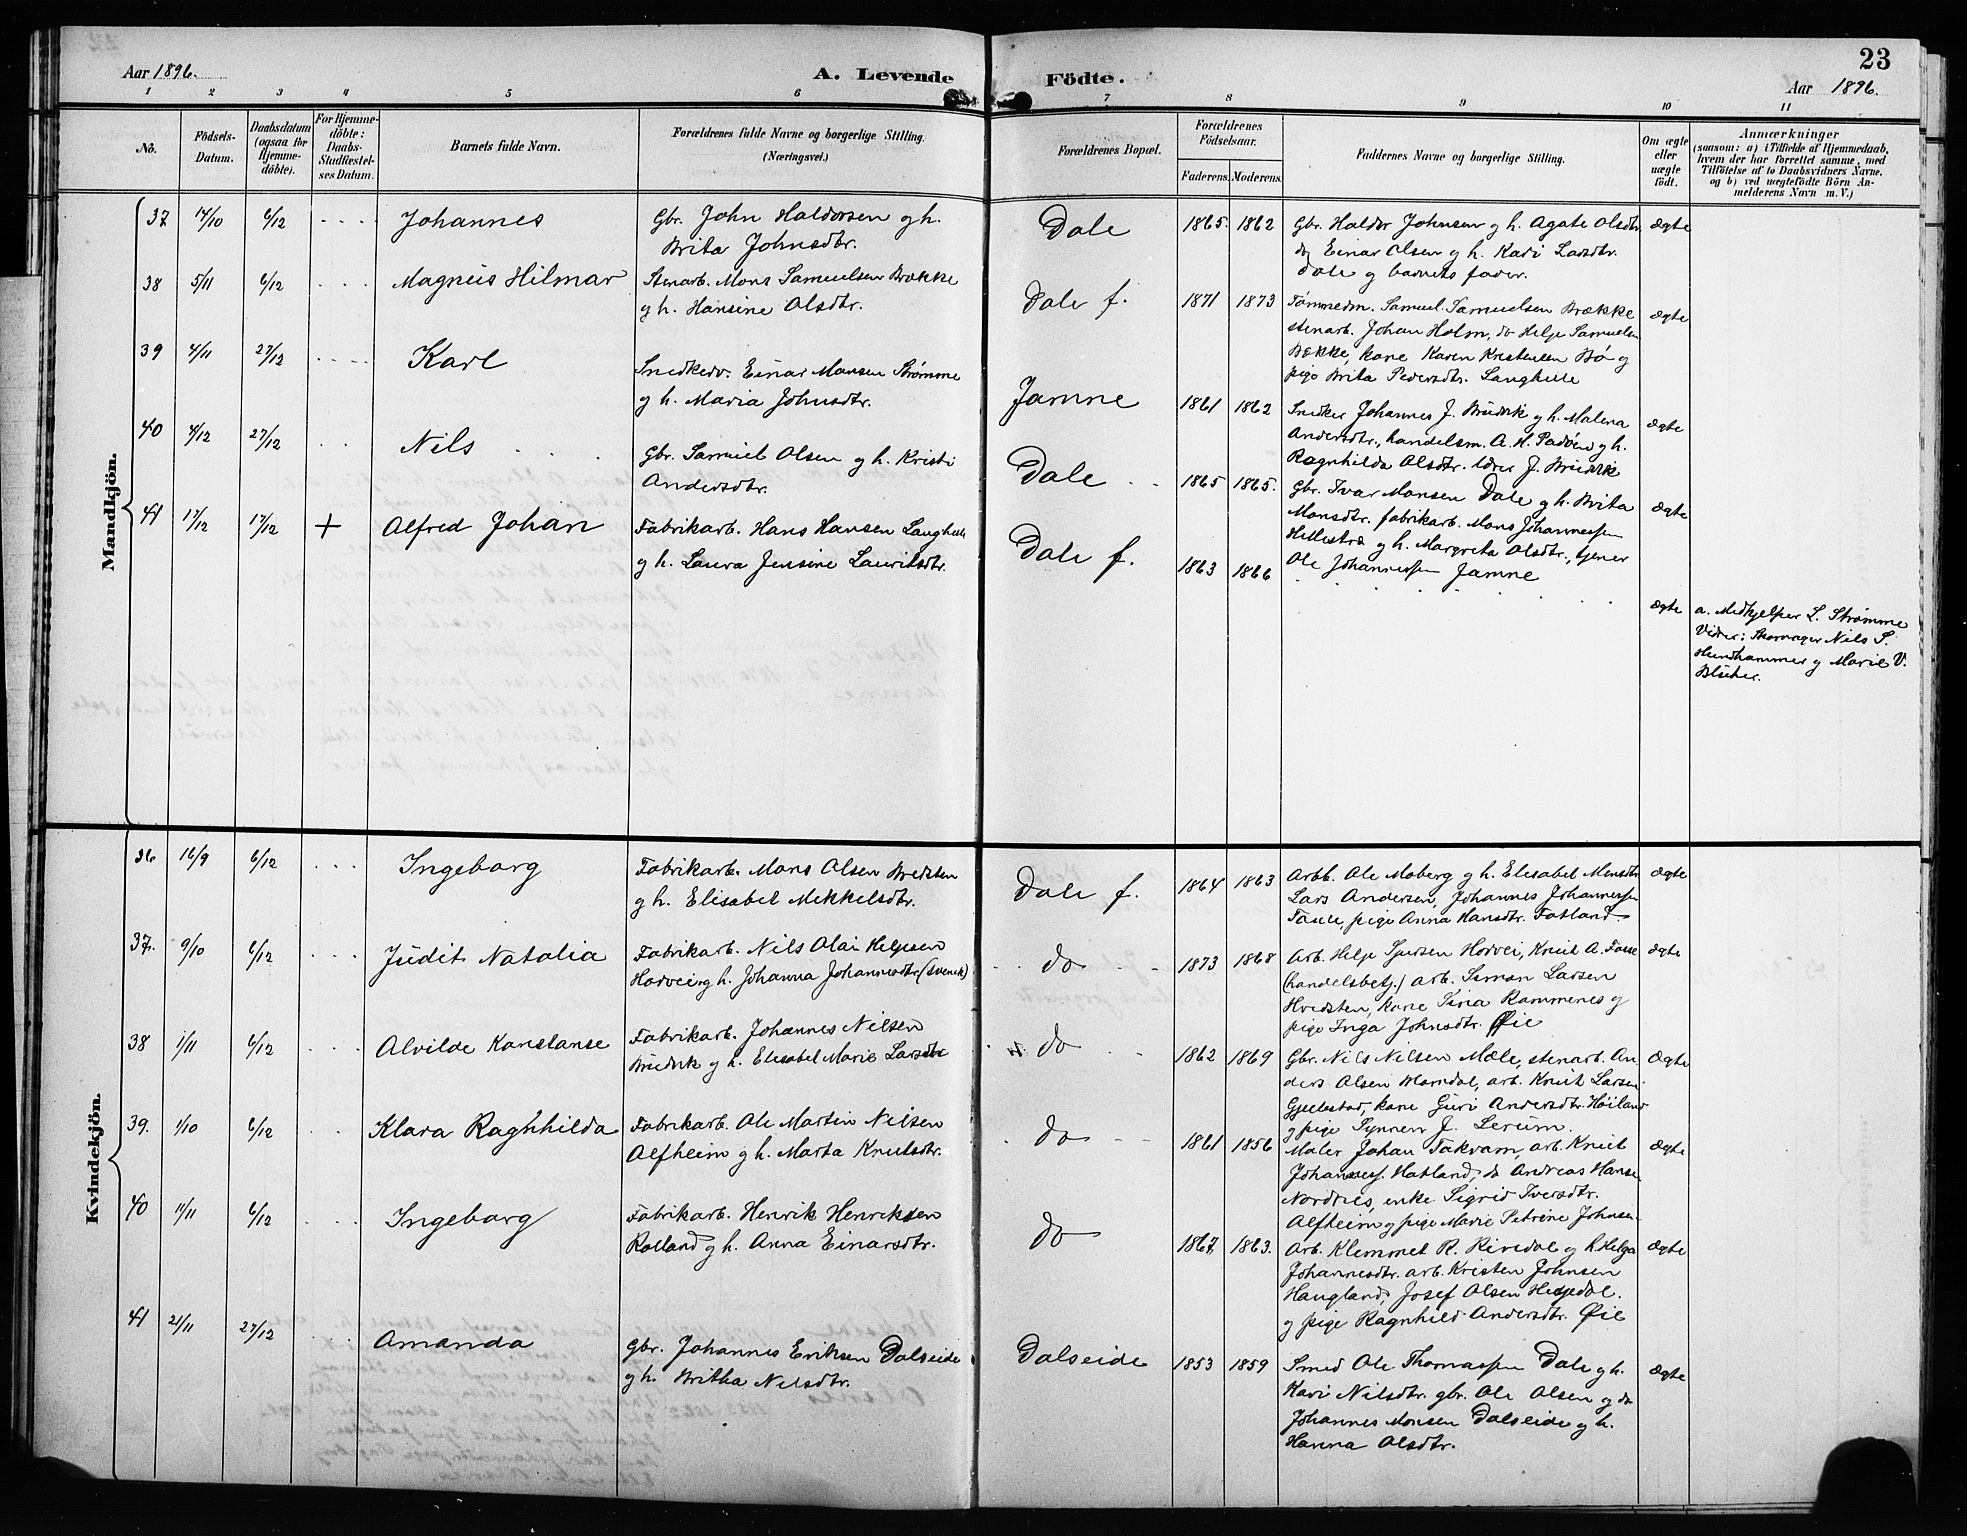 23
Aar 1896.
A. Levende Födte.
Aar 1896.
1 2 3 4 5 6 7 8 9 10 11
No.
Födsels-Datum.
Daabsdatum (ogsaa for Hjemme-døbte).
For Hjemme-döbte: Daabs-Stadfæstel-ses Datum.
Barnets fulde Navn.
Forældrenes fulde Navne og borgerlige Stilling.
(Næringsvei.)
Forældrenes Bopæl.
Forældrenes Födselsaar.
Faderens. Moderens.
Faddernes Navne og borgerlige Stilling.
Om ægte eller uægte födt.
Anmærkninger
(saasom: a) i Tilfælde af Hjemmedaab,
hvem der har forrettet samme, med
Tilföielse af to Daabsvidners Navne.
og b) ved uægtefödte Börn An-
melderens Navn m. V.)
Mandkjön.
37 17/10 6/12 Johannes
Gbr. John Haldorsen og h.
Brita Johnsdtr.
Dale 1865. 1862
Gbr. Haldor Johnsen og h. Agate Olsdtr.
do Einar Olsen og h. Kari Larsdtr.
Dale og barnets fader.
ægte
38 5/11 6/12 Magnus Hilmar
Stenarb. Mons Samuelsen Brække
og h. Hansine Olsdtr.
Dale f. 1871 1873
Tømmedm. Samuel Samuelsen Brække
stenarb. Johan Holm, do Helje Samuelsen
Brække, kone Karen Kristensen Bø og
pige Brita Pedersdtr. Langhelle
ægte
39 4/11 27/12 Karl
Snedkerv. Einar Monsen Strømme
og h. Maria Johnsdtr.
Jamne 1861 1862
Snedker Johannes J. Brudvik og h. Malena
Andersdtr., handelsm. A. H. Padøen og h.
Ragnhilda Olsdtr. lærer J. Brudvik
ægte
40 4/12 27/12 Nils
Gbr. Samuel Olsen og h. Kristi
Andersdtr.
Dale 1865 1865.
Gbr. Ivar Monsen Dale og h. Brita
Monsdtr. fabrikarb. Mons Johannessen
Hellestræ og h. Margreta Olsdtr., tjener
Ole Johannessen Jamne
ægte
41 17/12 17/12 + Alfred Johan
Fabrikarb. Hans Hansen Langhelle
og h. Laura Jensine Lauritsdtr.
Dale f. 1863 1866
ægte
a. Medhjelper L. Strømme
Vidner: Skomager Nils S.
Hundhammer og Marie V.
Blücher.
Kvindekjön.
36 16/9 6/12 Ingeborg
Fabrikarb. Mons Olsen Bredsten
og h. Elisabet Mikkelsdtr.
Dale f. 1864 1863
Arb. Ole Moberg og h. Elisabet Monsdtr.
Lars Andersen, Johannes Johannessen
Taule, pige Anna Hansdtr. Fatland
ægte
37. 9/10 6/12 Judit Natalia
Fabrikarb. Nils Olai Helgesen
Horvei og h. Johanna Johannesdtr. (svensk)
do 1873 1868
Arb. Helje Sjursen Horvei, Knut A. Fosse
(handelsbetj.) arb. Simon Larsen
Hvedsten, kone Sina Rammenes og
pige Inga Johnsdtr. Øie
ægte
38 1/11 6/12 Alvilde Konstanse
Fabrikarb. Johannes Nilsen
Brudvik og h. Elisabet Marie Larsdtr
do 1862 1869
Gbr. Nils Nilsen Mæle, stenarb. An-
ders Olsen Morndal, arb. Knut Larsen
Gjellestad, kone Guri Andersdtr. Høiland
og pige Synnev J. Lerum.
Ægte
39. 1/10 6/12 Klara Ragnhilda
Fabrikarb. Ole Martin Nilsen
Alfheim og h. Marta Knutsdtr.
do 1861 1856
Maler Johan Takvam, arb. Knut
Johanness. Hatland, do Andreas Hansen
Nordnes, enke Sigrid Iversdtr.
Alfheim og pige Marie Petrine Johnsen.
ægte
40 11/11 6/12 Ingeborg
Fabrikarb. Henrik Henriksen
Rolland og h. Anna Einarsdtr.
do 1867 1863.
Arb. Klemmet R. Rivedal og h. Helga
Johannesdtr. arb. Kristen Johnsen
Haugland, Josef Olsen Hesjedal.
og pige Ragnhild Andersdtr. Øie
ægte
41 21/11 27/12 Amanda
Gbr. Johannes Eriksen Dalseide
og h. Britha Nilsdtr.
Dalseide 1853 1859
Smed Ole Thomassen Dale og h.
Kari Nilsdtr. gbr. Ole Olsen og do
Johannes Monsen Dalseide og h.
Hanna Olsdtr.
ægte